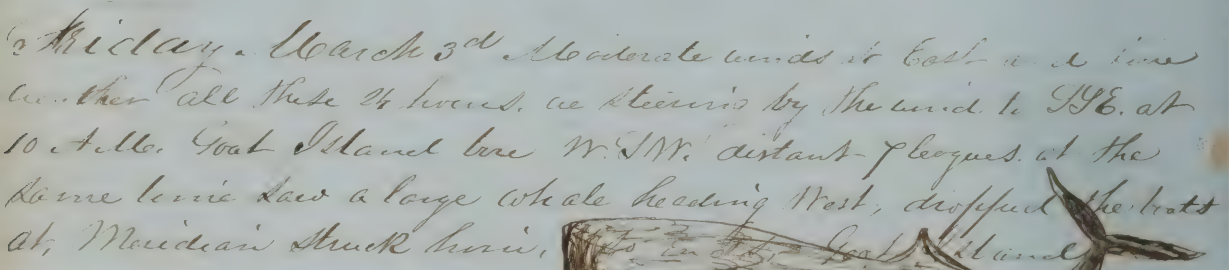 Friday. March 3d Moderate winds at East and fine
weather all these 24 hours. we steering by the wind to SSE. at
10 A.M. Goat Island bore W.S.W. distant 7 leagues. at the
same time saw a large whale heading West, dropped the boats
at, Meridian struck him, Goat Island